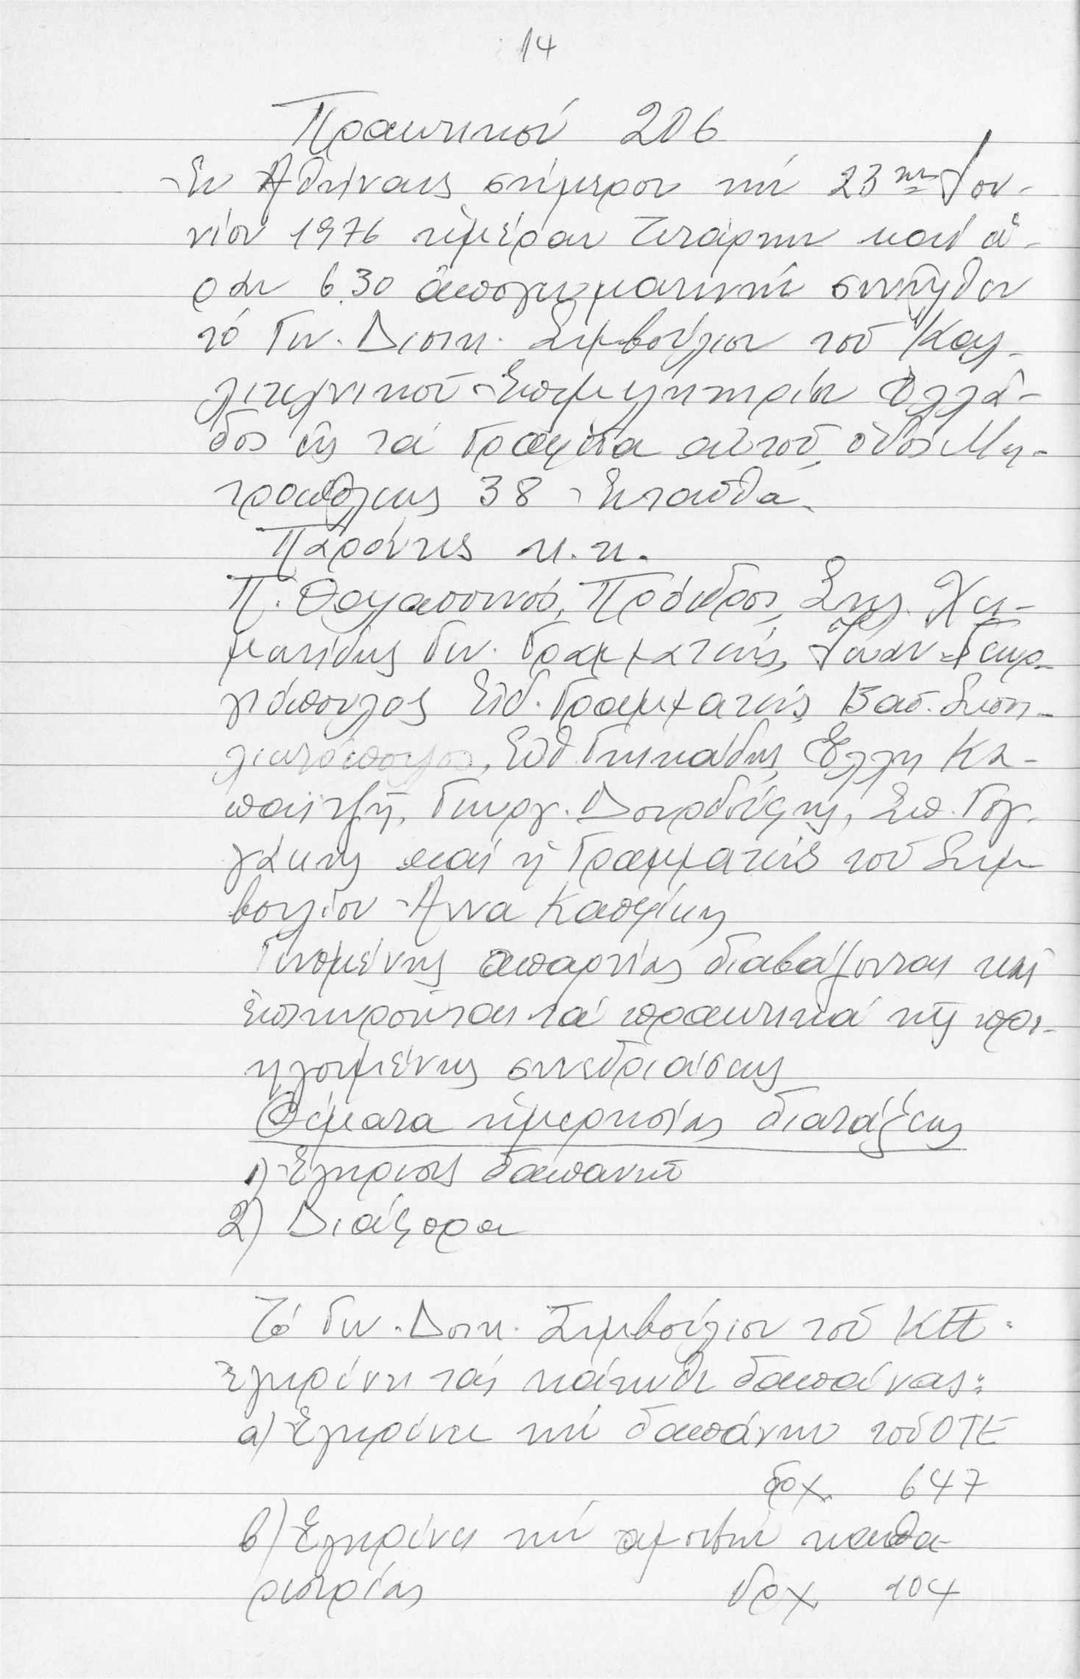 14
Πρακτικόν 206
Ἐν Ἀθήναις σήμερον τήν 23ην Ἰου-
νίου 1976 ἡμέραν Τετάρτην καί ὥ-
ραν 6.30 ἀπογευματινήν συνῆλθεν
τό Γεν. Διοικ. Συμβούλιον τοῦ Καλ-
λιτεχνικοῦ Ἐπιμελητηρίου Ἑλλά-
δος εἰς τά Γραφεῖα αὐτοῦ, ὁδός Μη-
τροπόλεως 38 Ἐνταῦθα.
Παρόντες κ.κ.
Π. Θαλασσινός, Πρόεδρος, Χει-
ματίδης Γεν. Γραμματεύς, Ἰωάν. Γεωρ-
γιόπουλος Εἰδ. Γραμματεύς, Βασ. Σπη-
λιωτόπουλος, Εὐθ. Έλλη Κα-
Γεωργ. Σπ. Γογ-
γάκης καί ἡ Γραμματεύς τοῦ Συμ
βουλίου Ἄννα
Γενομένης ἀπαρτίας διαβάζονται καί
ἐπικυροῦνται τά πρακτικά τῆς προ-
ηγουμένης συνεδριάσεως
Θέματα ἡμερησίας διατάξεως
1) Ἔγκρισις δαπανῶν
2) Διάφορα
Τό Γεν. Διοικ. Συμβούλιον τοῦ ΚΕΕ.
Ἐγκρίνει τάς κάτωθι δαπάνας:
α) Ἐγκρίνει τήν δαπάνην τοῦ ΟΤΕ
δρχ. 647
β) Ἐγκρίνει τήν ἀμοιβήν καθα-
ριστρίας δρχ. 104